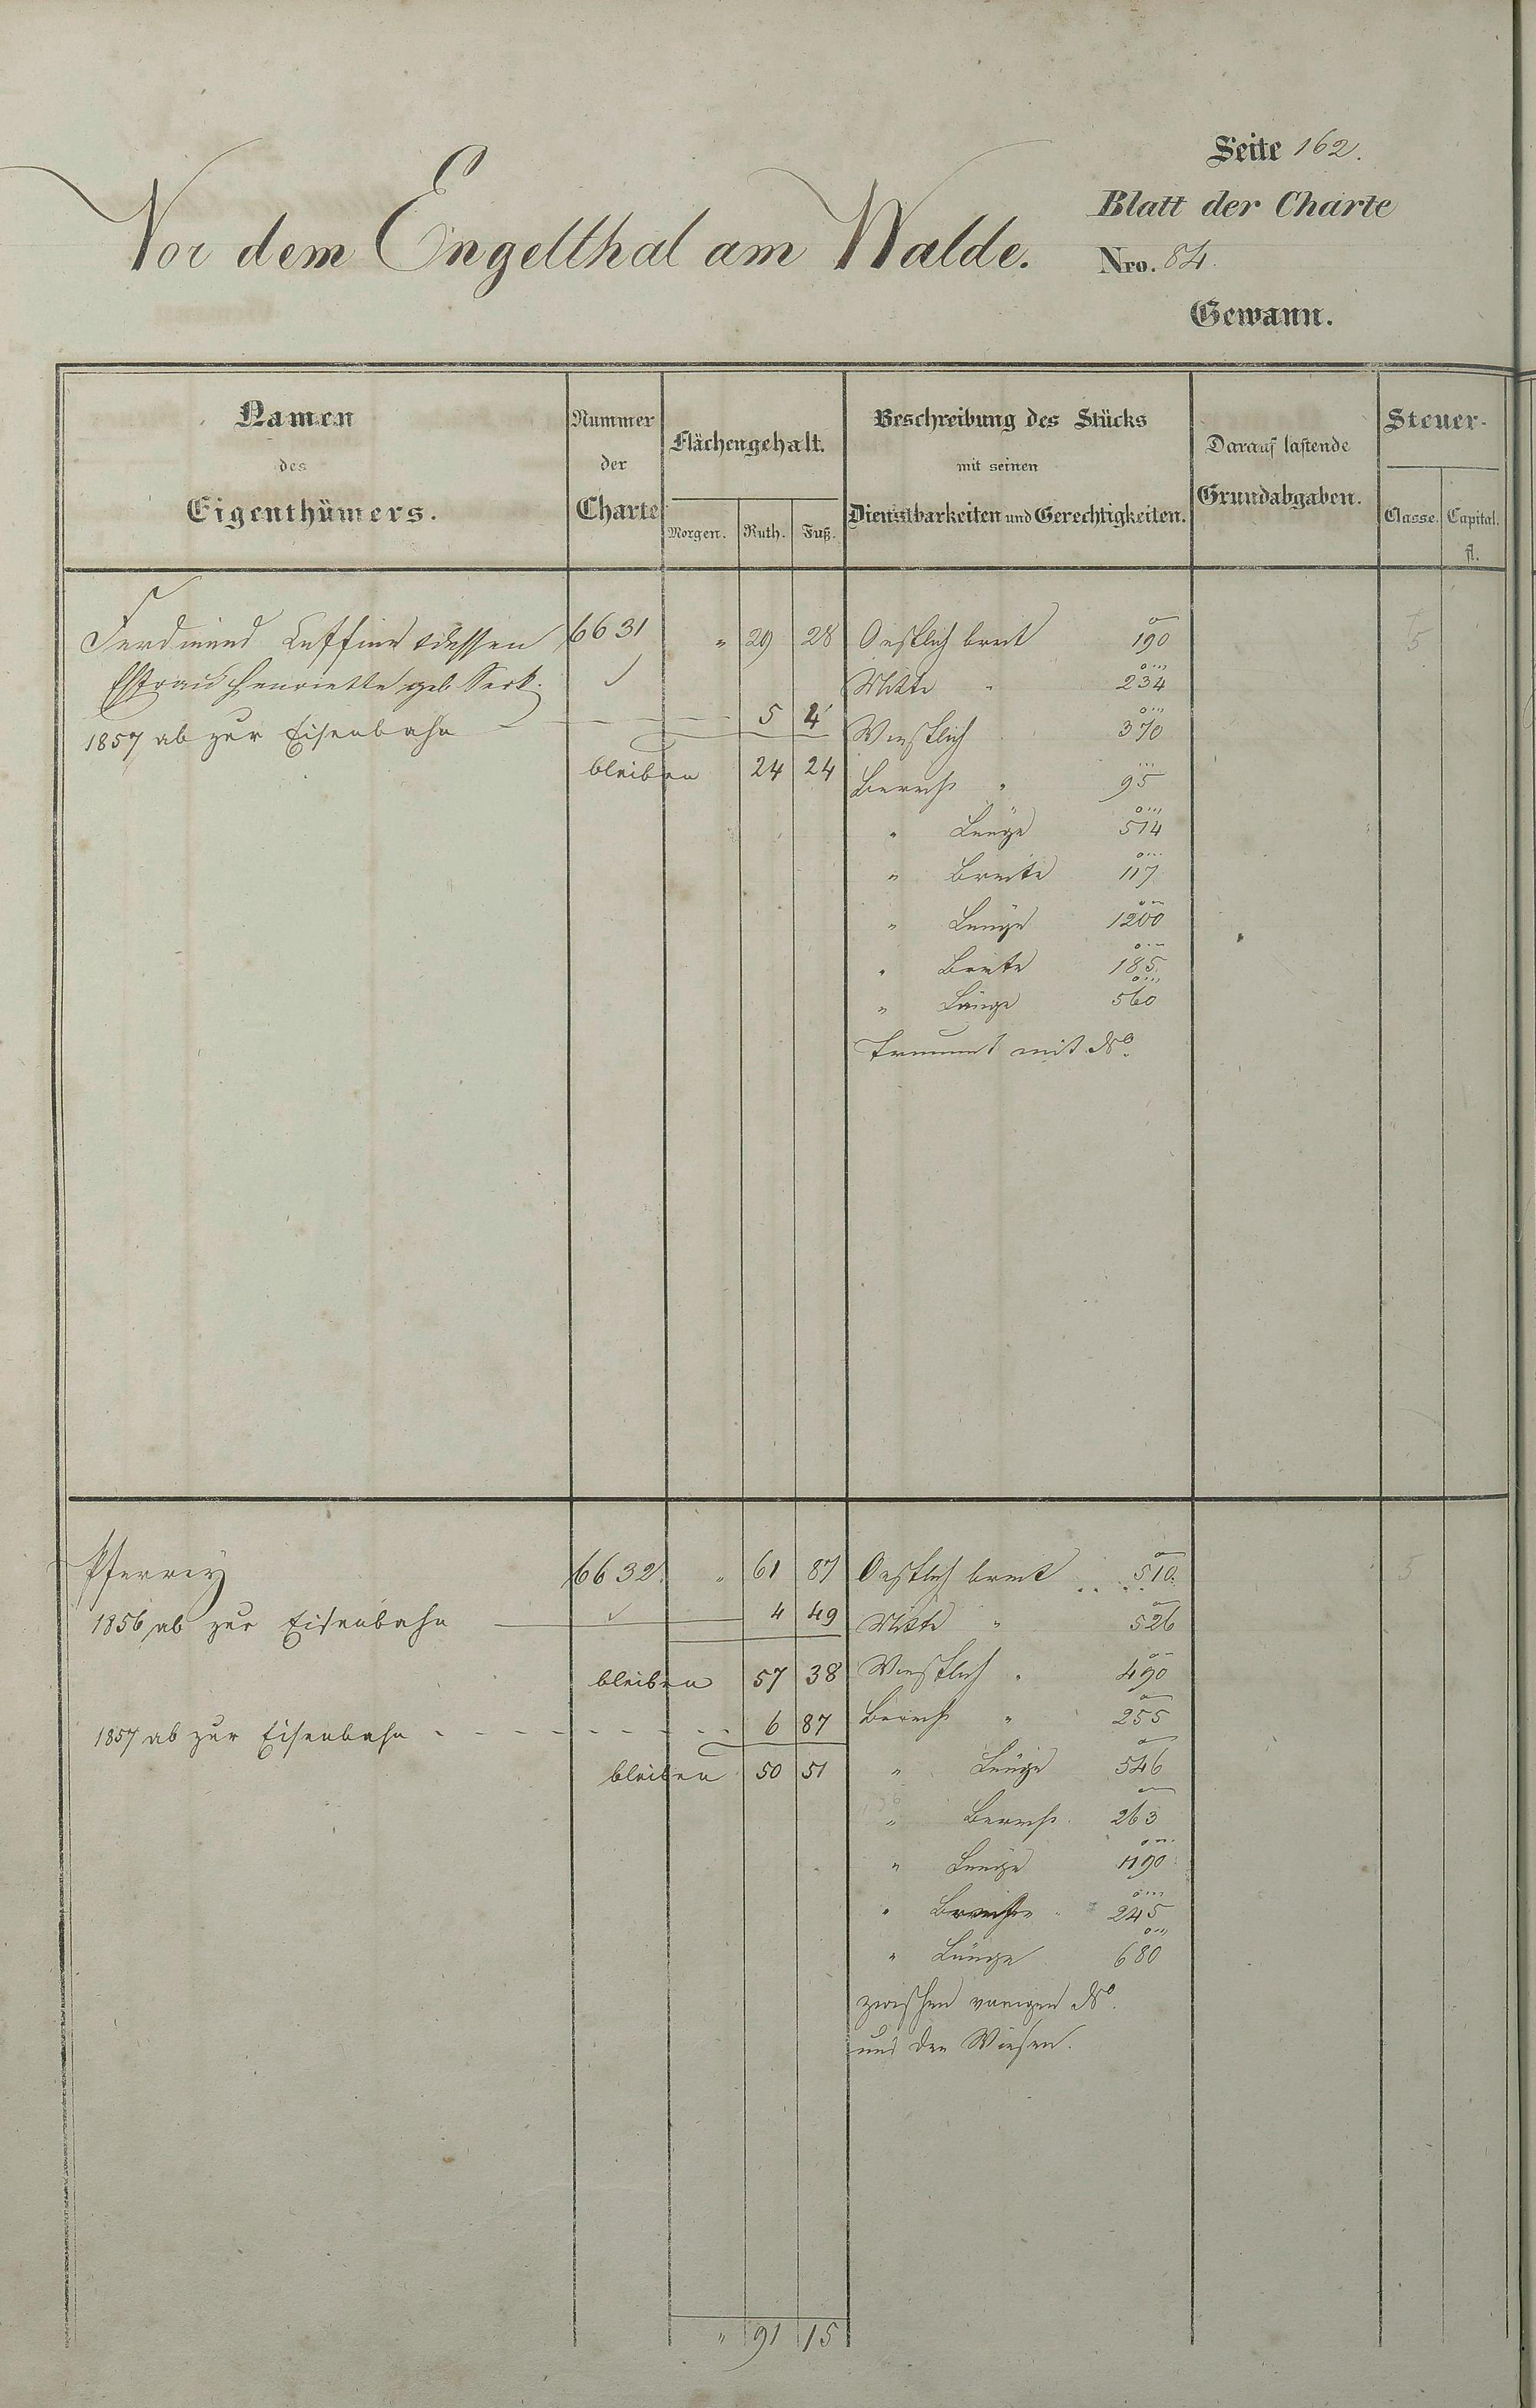 Seite 162.
Blatt der Charte
Vor dem Engelthal am Walde.
Nro. 84.
Gewann.
Namen des Eigenthümers.
Nummer der Charte
Flächengehalt.
Morgen. Ruth. Fuß.
Beschreibung des Stücks mit seinen Dienstbarkeiten und Gerechtigkeiten.
Darauf lastende Grundabgaben.
Steuer-
Classe. Capital. fl.
Ferdinand dessen 6631 " 29 28 Oestlich breit 190 5
Ehfrau Henriette geb. Mitte " 234
1857 ab zur Eisenbahn 5 4 Westlich 370
bleiben 24 24 95
" Länge 514
" Breite 117
" Länge 1200
" Breite 185
" Länge 560
mit No.
Pfarrey 6632. " 61 87 Oestlich breit 510. 5
1856 ab zur Eisenbahn 4 49 Mitte " 526
bleiben 57 38 Westlich " 490
1857 ab zur Eisenbahn 6 87 " 255
bleiben 50 51 " Länge 546
" 263
" Länge 1190
" 245
" Länge 680
zwischen voriger No.
und den Wiesen.
" 91 15